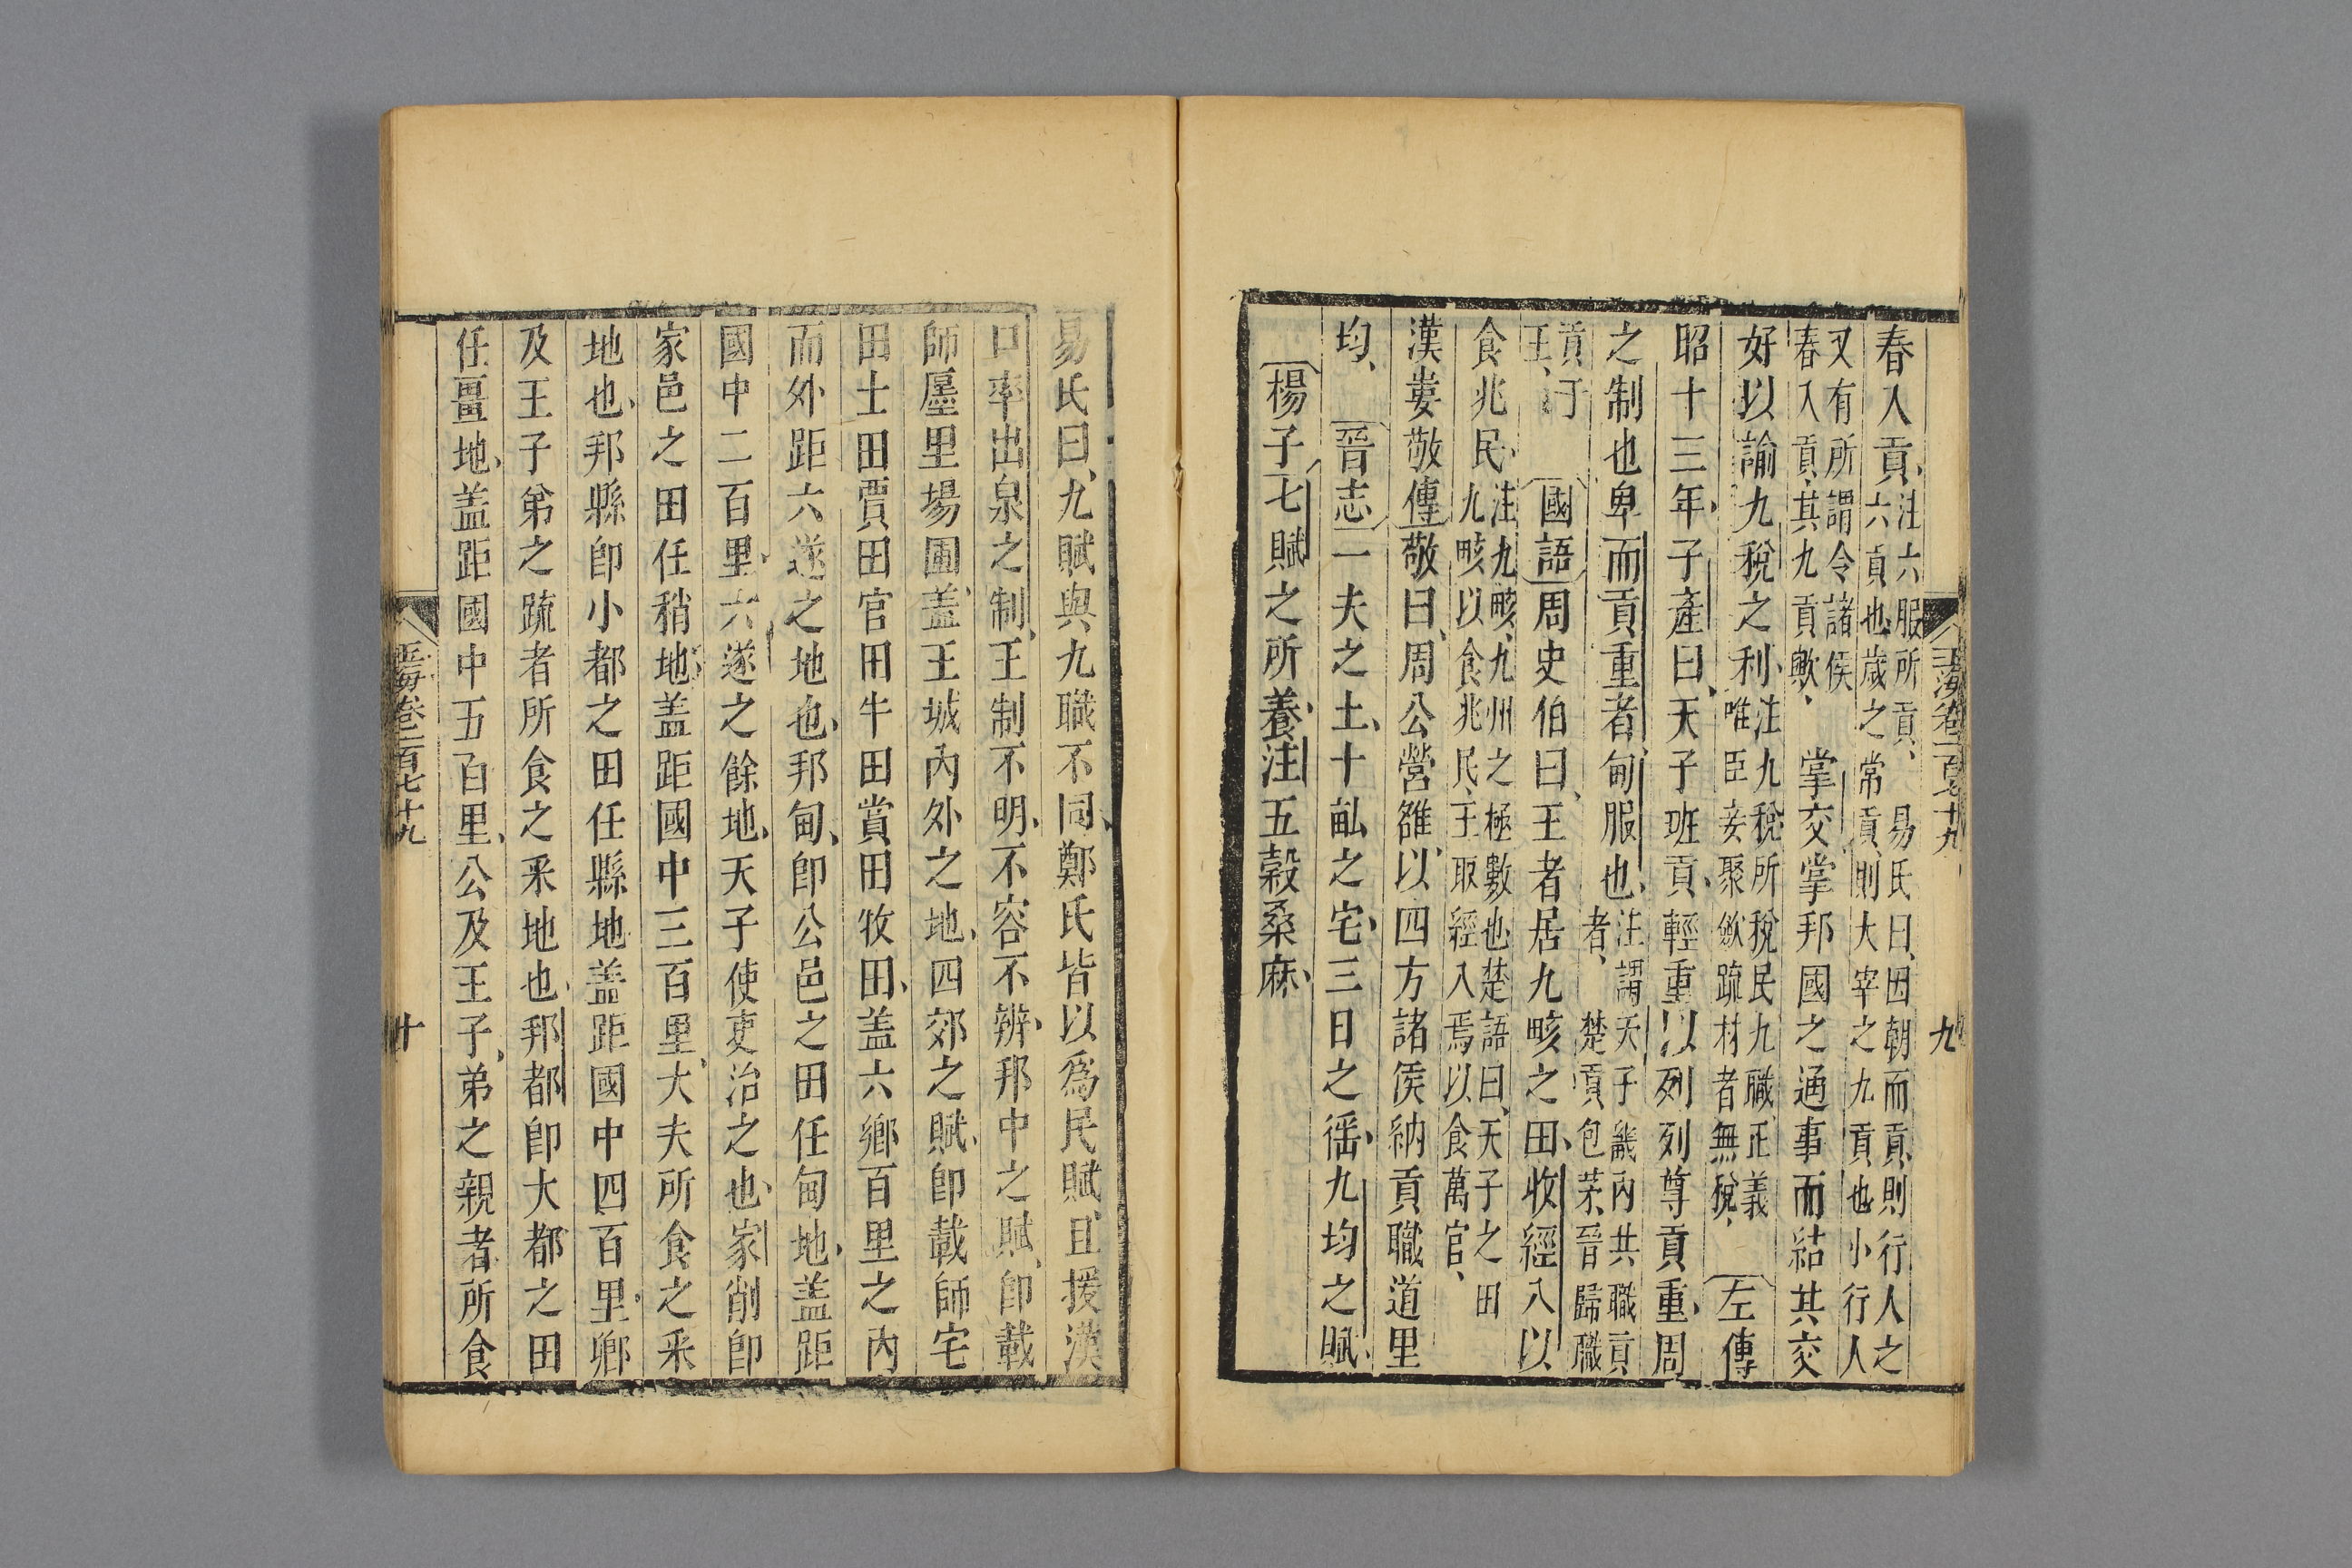 玉海卷一百七十九
九
春入貢、注六服所貢、易氏曰、因朝而貢、則行人之
六貢也、歲之常貢、則大宰之九貢也小行人
又有所謂令諸侯
春入貢、其九貢歟、掌交掌邦國之通事而結其交
好以諭九稅之利、注九稅所稅民九職、正義
唯臣妾聚斂疏材者無稅、左傳
昭十三年、子產曰、天子班貢、輕重以列列尊貢重、周
之制也卑而貢重者甸服也、注謂天子畿內共職貢
者、楚貢包茅、晉歸職
貢于
王、國語周史伯曰、王者居九畡之田、收經入以
食兆民、注九畡、九州之極數也楚語曰、天子之田
九畡以食兆民、王取經入焉以食萬官、
漢婁敬傳敬曰、周公營雒、以四方諸侯納貢職道里
均、晉志一夫之土、十畝之宅、三日之徭、九均之賦、
楊子七賦之所養、注五穀桑麻、
易氏曰、九賦與九職不同、鄭氏皆以爲民賦、且援漢
口率出泉之制、王制不明、不容不辨、邦中之賦、卽載
師廛里場圃、盖王城內外之地、四郊之賦、卽載師宅
田士田賈田官田牛田賞田牧田、盖六鄉百里之內
而外距六遂之地也、邦甸、卽公邑之田任甸地、盖距
國中二百里、六遂之餘地、天子使吏治之也、家削卽
家邑之田任稍地、盖距國中三百里、大夫所食之采
地也、邦縣卽小都之田任縣地盖距國中四百里、鄉
及王子弟之疏者所食之采地也、邦都卽大都之田
任畺地、盖距國中五百里、公及王子、弟之親者所食
玉海卷一百七十九
十